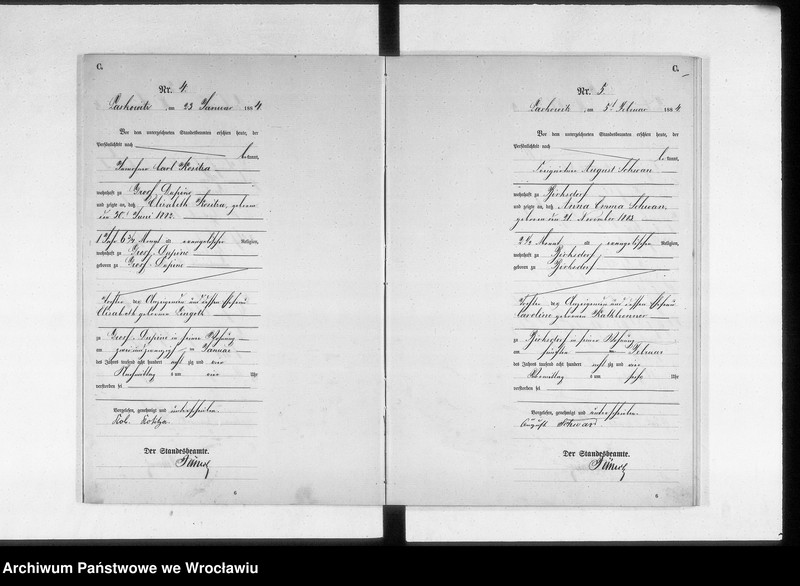 C.
Nr. 4.
am 23 Januar 1884.
Vor dem unterzeichneten Standesbeamten erschien heute, der
Persönlichkeit nach
bekannt,
Carl Kositza
wohnhaft zu Gross Dupine
und zeigte an, daß Elisabeth Kositza, geboren
den 30. Juni 1882.
1 Jahr 6 3/4 Monat alt evangelischer Religion,
wohnhaft zu Gross Dupine
geboren zu Gross Dupine
Tochter des Anzeigenden und dessen Ehefrau
Elisabeth geborenen
zu Gross Dupine in seiner Wohnung
am zwei und zwanzigsten Januar
des Jahres tausend acht hundert acht zig und vier
Nachmittag s um vier Uhr
verstorben sei
Vorgelesen, genehmigt und unterschrieben
Der Standesbeamte.
6
C.
Nr. 5.
am 5t Februar 1884.
Vor dem unterzeichneten Standesbeamten erschien heute, der
Persönlichkeit nach
bekannt,
August Schwan
wohnhaft zu
und zeigte an, daß Anna Emma Schwan,
geboren den 21. November 1883
2 1/2 Monat alt evangelischer Religion,
wohnhaft zu
geboren zu
Tochter des Anzeigenden und dessen Ehefrau
Caroline geborenen Kaltbrenner
zu in seiner Wohnung
am fünften Februar
des Jahres tausend acht hundert acht zig und vier
Vormittag s um sechs Uhr
verstorben sei
Vorgelesen, genehmigt und unterschrieben
August Schwan
Der Standesbeamte.
6
Archiwum Państwowe we Wrocławiu